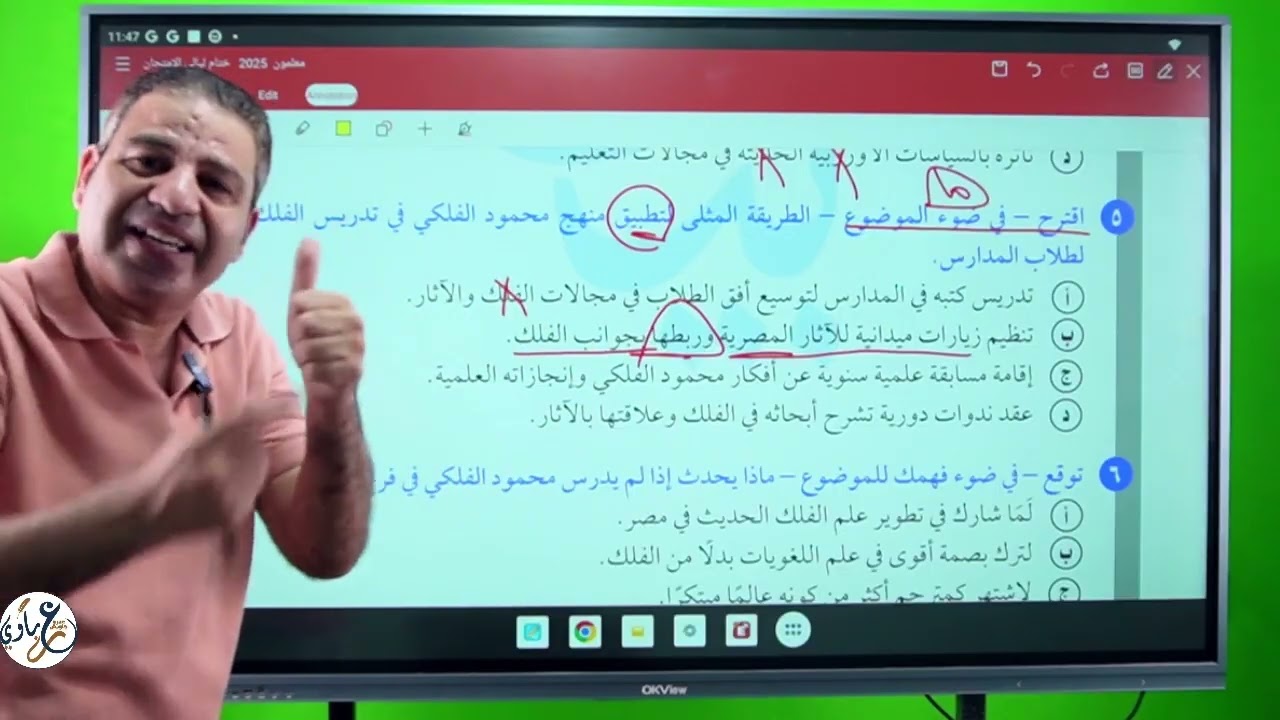 11:47
معلمون 2025 ختام ليالي الامتحان
Edit
د تأثره بالسياسات الأوروبية الحديثة في مجالات التعليم.
٥ اقترح – في ضوء الموضوع – الطريقة المثلى لتطبيق منهج محمود الفلكي في تدريس الفلك
لطلاب المدارس.
أ تدريس كتبه في المدارس لتوسيع أفق الطلاب في مجالات الفلك والآثار.
ب تنظيم زيارات ميدانية للآثار المصرية وربطها بجوانب الفلك.
ج إقامة مسابقة علمية سنوية عن أفكار محمود الفلكي وإنجازاته العلمية.
د عقد ندوات دورية تشرح أبحاثه في الفلك وعلاقتها بالآثار.
٦ توقع – في ضوء فهمك للموضوع – ماذا يحدث إذا لم يدرس محمود الفلكي في
أ لَمَا شارك في تطوير علم الفلك الحديث في مصر.
ب لترك بصمة أقوى في علم اللغويات بدلًا من الفلك.
ج لاشتهر كمترجم أكثر من كونه عالمًا مبتكرًا.
OKView